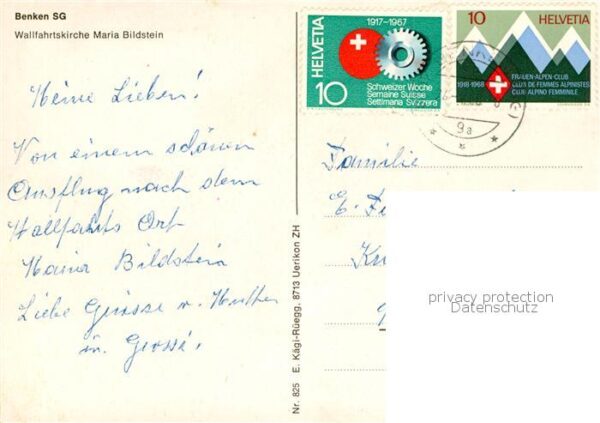 Benken SG
Wallfahrtskirche Maria Bildstein
Meine Lieben!
Von einem schönen
Ausflug nach dem
Wallfahrts Ort
Maria Bildstein
Liebe Grüsse v. Mutter
u. Grossi!
Nr. 825 E. Kägi-Rüegg, 8713 Uerikon ZH
HELVETIA
1917-1967
10
Schweizer Woche
Semaine Suisse
Settimana Svizzera
10 HELVETIA
1918-1968
FRAUEN-ALPEN-CLUB
CLUB DE FEMMES ALPINISTES
CLUB ALPINO FEMMINILE
9a
Familie
E.
privacy protection
Datenschutz